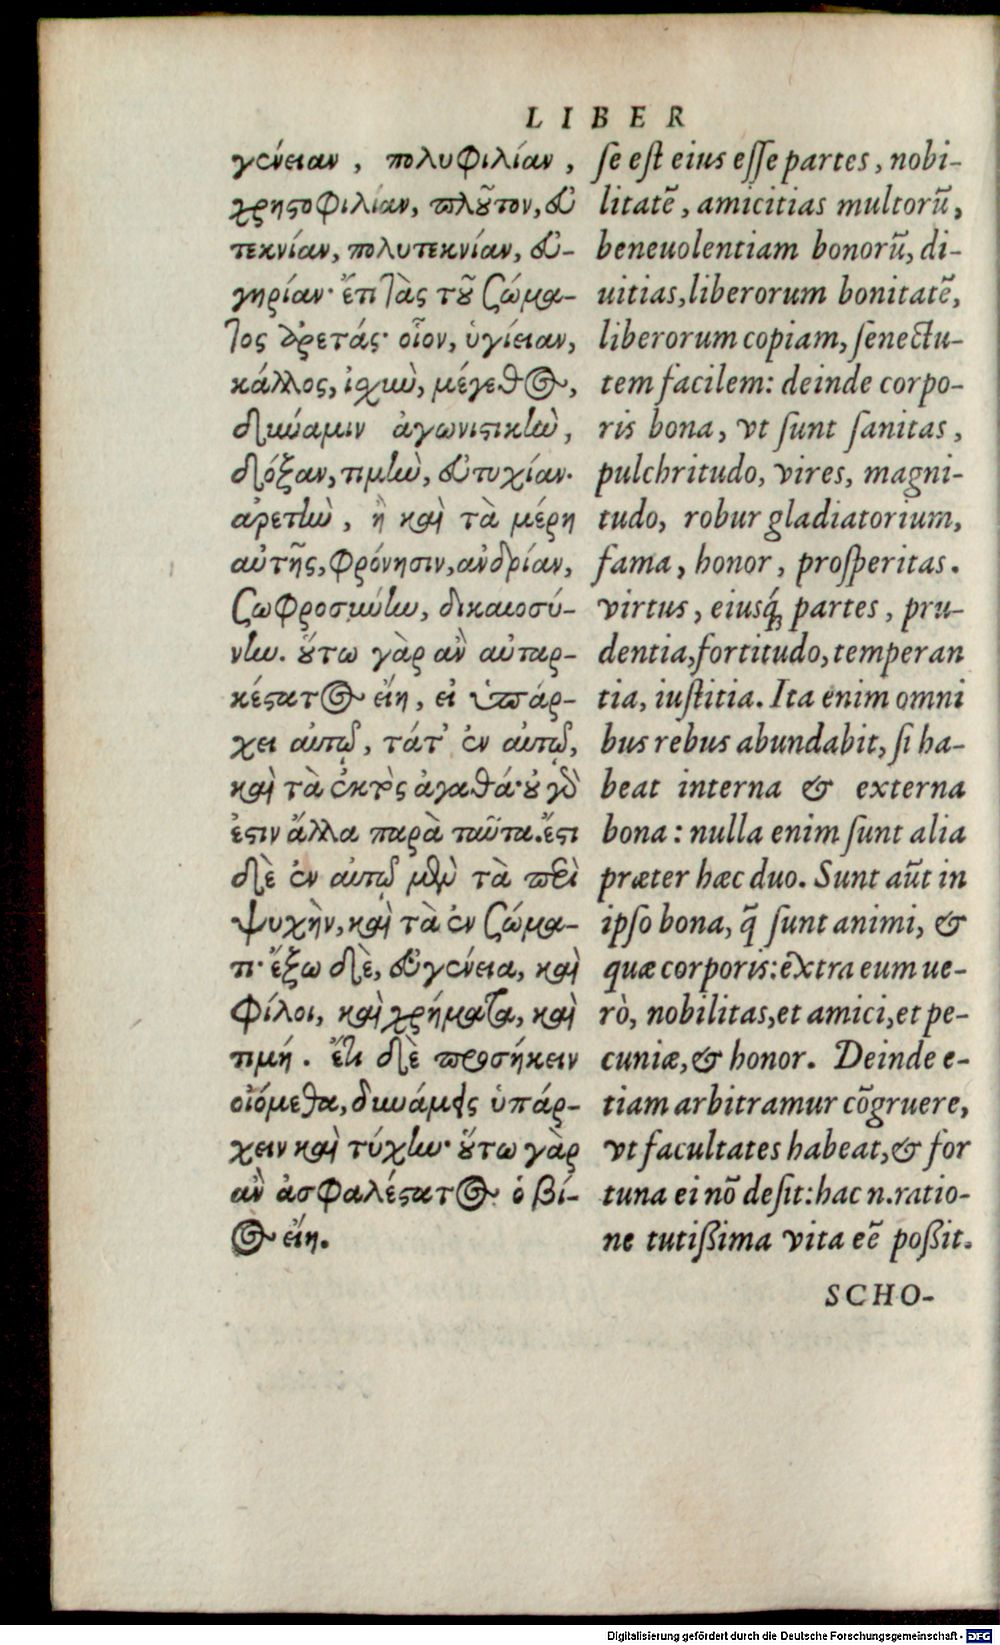 LIBER
γένειαν, πολυφιλίαν,
χρηστοφιλίαν, πλοῦτον, εὐ
τεκνίαν, πολυτεκνίαν, εὐ-
γηρίαν· ἔτι τὰς τοῦ σώμα-
τος ἀρετάς· οἷον, ὑγίειαν,
κάλλος, ἰσχὺν, μέγεθος,
δύναμιν ἀγωνιστικὴν,
δόξαν, τιμὴν, εὐτυχίαν.
ἀρετὴν, ἢ καὶ τὰ μέρη
αὐτῆς, φρόνησιν, ἀνδρίαν,
σωφροσύνην, δικαιοσύ-
νην. οὕτω γὰρ ἂν αὐταρ-
κέστατος εἴη, εἰ ὑπάρ-
χει αὐτῷ, τάτ' ἐν αὐτῷ,
καὶ τὰ ἐκτὸς ἀγαθά· οὐ γὰρ
ἐστιν ἄλλα παρὰ ταῦτα. ἔστι
δὲ ἐν αὐτῷ μὲν τὰ περὶ
ψυχὴν, καὶ τὰ ἐν σώμα-
τι· ἔξω δὲ, εὐγένεια, καὶ
φίλοι, καὶ χρήματα, καὶ
τιμή. ἔτι δὲ προσήκειν
οἰόμεθα, δυνάμεις ὑπάρ-
χειν καὶ τύχην· οὕτω γὰρ
ἂν ἀσφαλέστατος ὁ βί-
ος εἴη.
se est eius esse partes, nobi-
litatē, amicitias multorū,
beneuolentiam bonorū, di-
uitias, liberorum bonitatē,
liberorum copiam, senectu-
tem facilem: deinde corpo-
ris bona, vt sunt sanitas,
pulchritudo, vires, magni-
tudo, robur gladiatorium,
fama, honor, prosperitas.
virtus, eiusq́; partes, pru-
dentia, fortitudo, temperan
tia, iustitia. Ita enim omni
bus rebus abundabit, si ha-
beat interna & externa
bona: nulla enim sunt alia
præter hæc duo. Sunt aūt in
ipso bona, q̄ sunt animi, &
quæ corporis: extra eum ue-
rò, nobilitas, et amici, et pe-
cuniæ, & honor. Deinde e-
tiam arbitramur cōgruere,
vt facultates habeat, & for
tuna ei nō desit: hac n. ratio-
ne tutißima vita eē poßit.
SCHO-
Digitalisierung gefördert durch die Deutsche Forschungsgemeinschaft - DFG